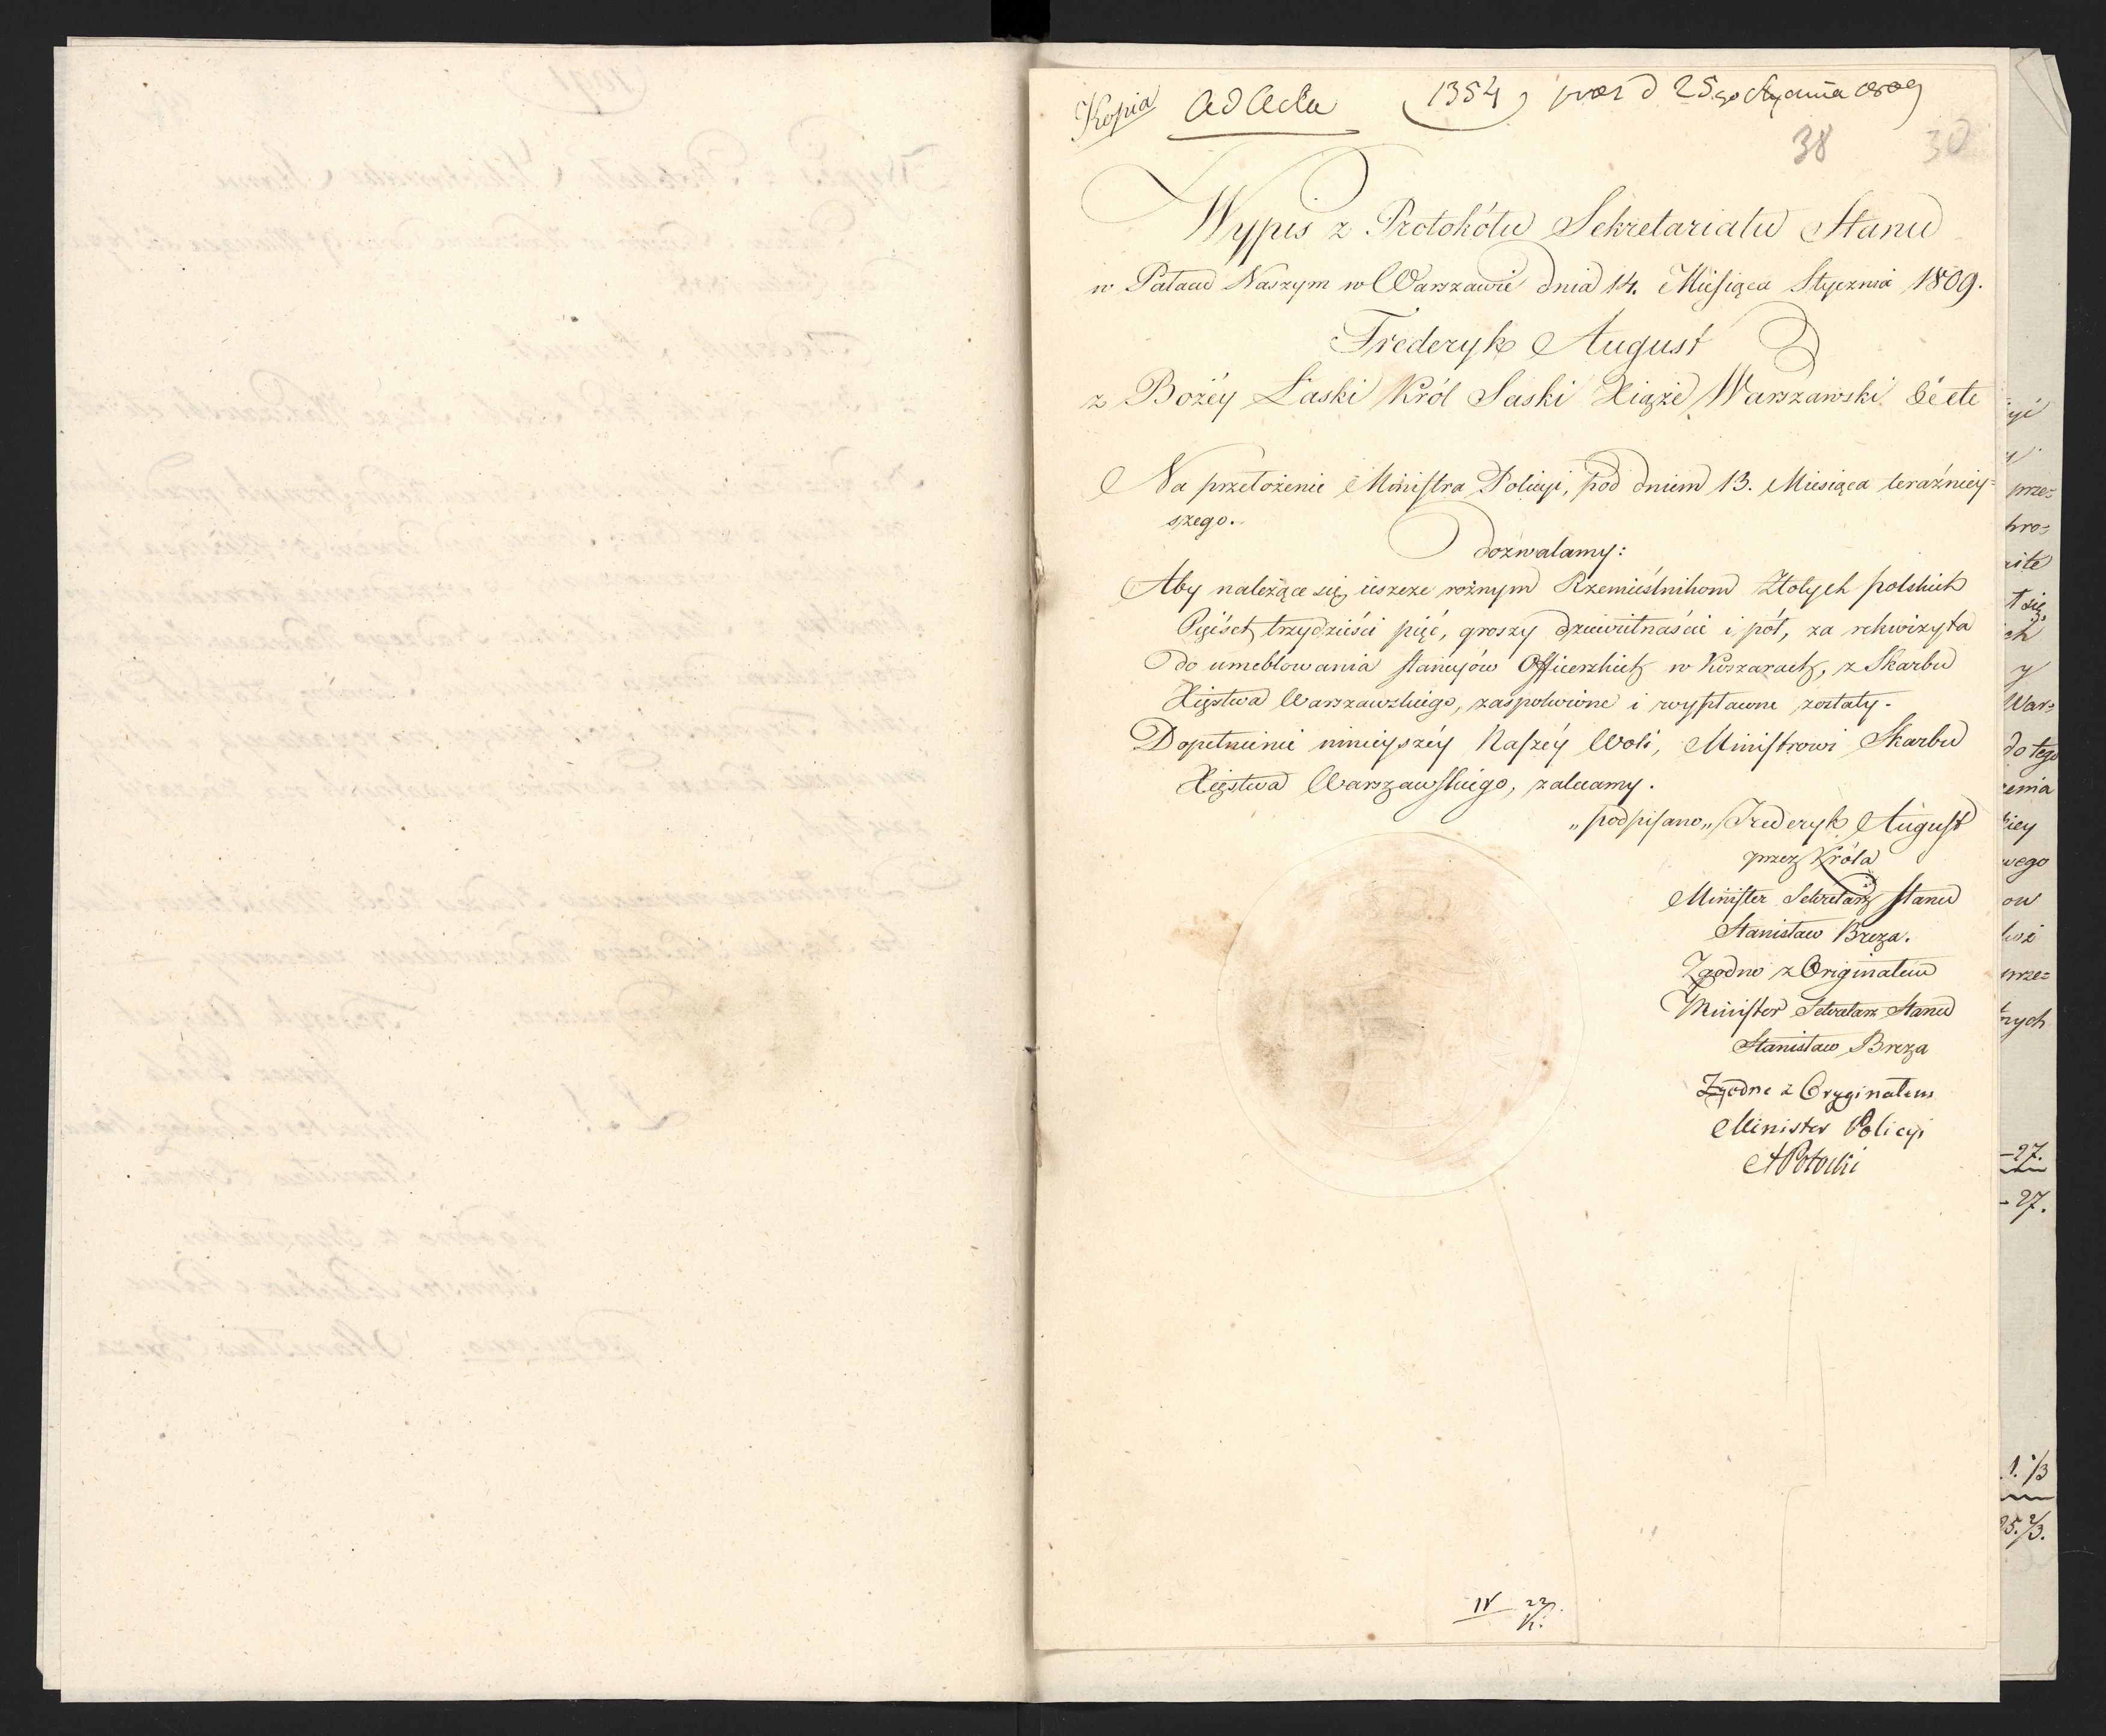 Kopia ad Acta 1354 25go Stycznia 1809
38 30
Wypis z Protokółu Sekretariatu Stanu
w Pałacu Naszym w Warszawie dnia 14. Miesiąca Stycznia 1809.
Frederyk August
z Bożéy Łaski Król Saski Xiąże Warszawski &c etc
Na przełożenie Ministra Policyi, pod dniem 13. Miesiąca teraźniey=
szego.
Dozwalamy:
Aby należące się ieszcze rożnym Rzemieślnikom Złotych polskich
Pięćset trzydzieści pięć, groszy dziewiętnaście i pół, za rekwizyta
do umeblowania stancyów Officerskich w Koszarach, z Skarbu
Xięstwa Warszawskiego, zaspokoione i wypłacone zostały.
Dopełnienie ninieyszéy Naszéy Woli, Ministrowi Skarbu
Xięstwa Warszawskiego, zalecamy.
„podpisano„ Frederyk August
przez Króla
Minister Sekretarz Stanu
Stanisław Breza.
Zgodno z Originałem
Minister Sekretarz Stanu
Stanisław Breza
Zgodne z Oryginałem
Minister Policyi
APotocki
IV 22
K.
prze=
hro=
t się
ch
y
War=
do tego
zenia
kiey
wego
ow
prze=
nych
-27.
-27.
1. 1/3
25. 2/3.